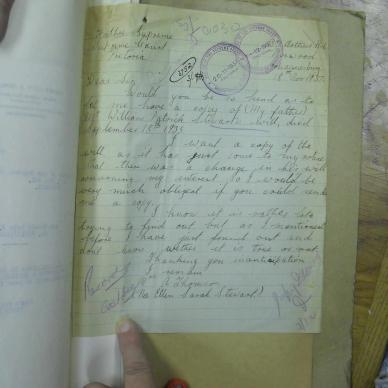 Supreme
Court
Victoria
18th Nov 1935
Dear Sir
Would you be so kind as to
let me have a copy of (My father)
Mr William Patrick Stewarts will, died
September 15th
I want a copy of the
will as it has just come to my notice
that there was a change in his will
concerning my interest & I would be
very much obliged if you could send
me a copy.
I know it is rather late
trying to find out but as I mentioned
before I have just found out and
dont know wether it is true or not
Thanking you in anticipation
I remain
A Thomson
(Nee Ellen Sarah Stewart)